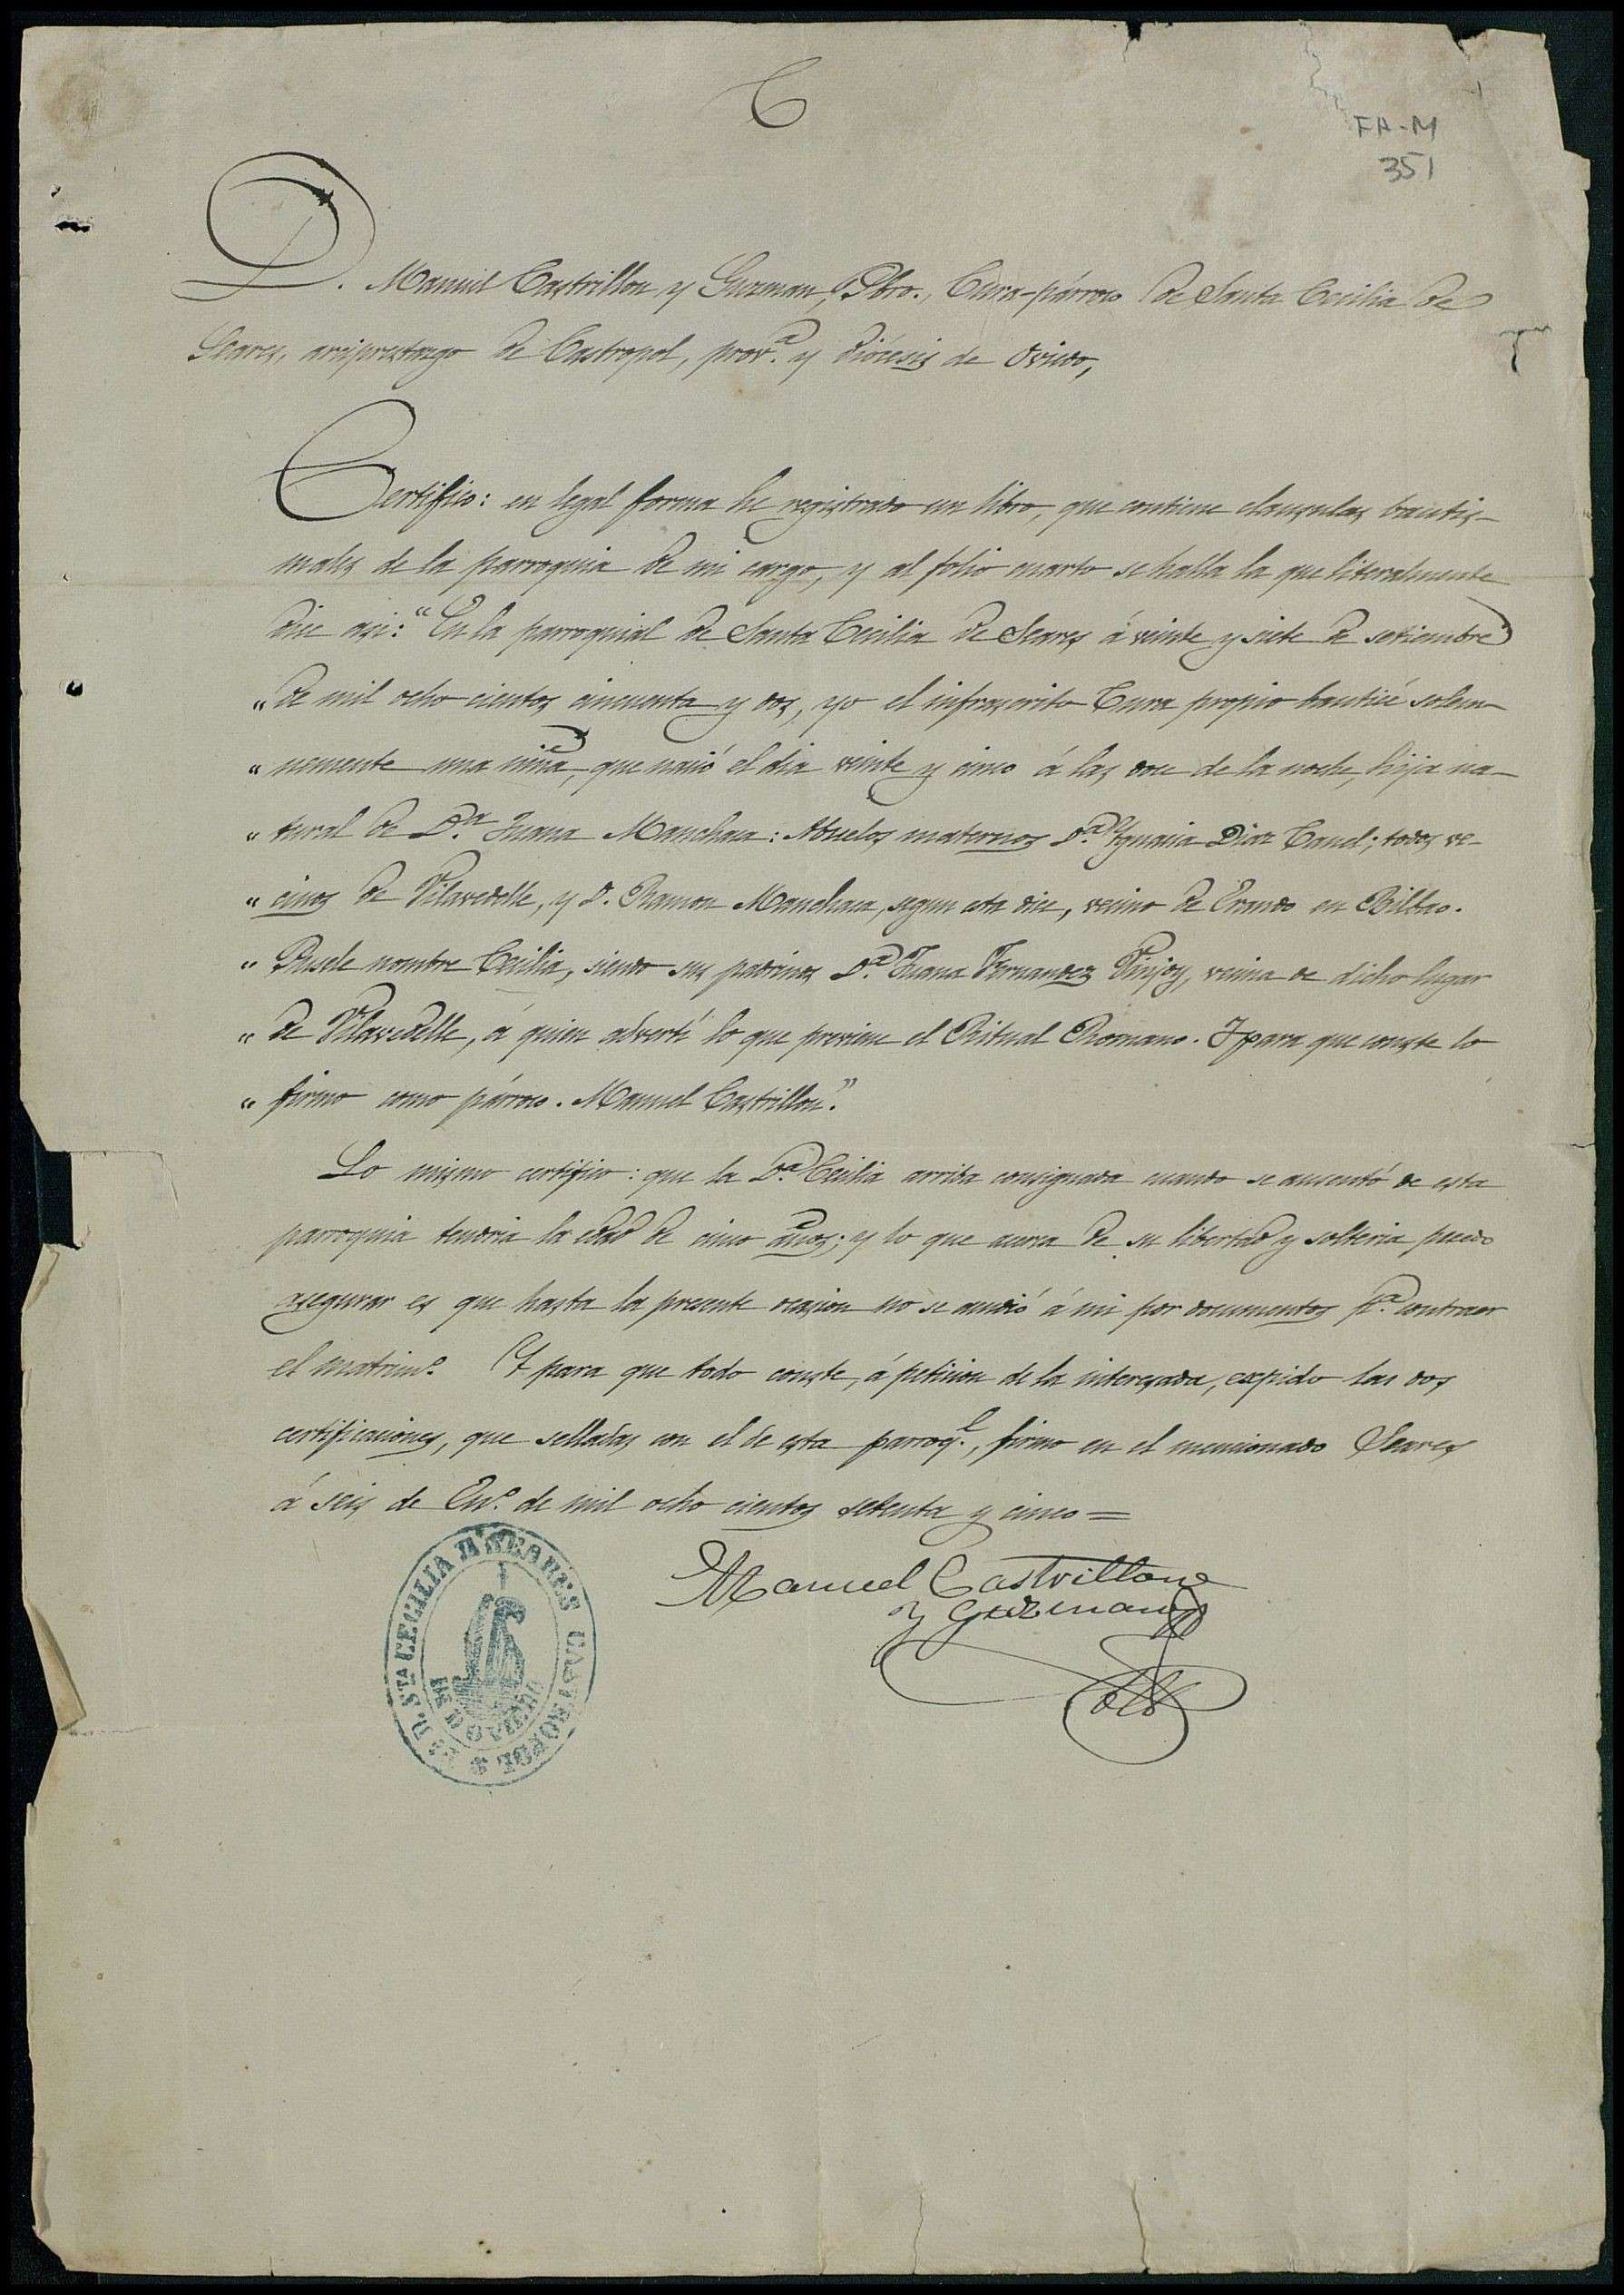 C
FA-M
351
D. Manuel Castrillon y Guzman, Pbro., Cura-párroco de Santa Cecilia de
Seares, arciprestazgo de Castropol, prov.ª y diócesis de Oviedo,
Certifico: en legal forma he registrado un libro, que contiene clausulas bautis-
males de la parroquia de mi cargo, y al folio cuarto se halla la que literalmente
dice asi: "En la parroquial de Santa Cecilia de Seares á veinte y siete de setiembre
" de mil ocho cientos cincuenta y dos, yo el infrascrito Cura propio bauticé solem-
" nemente una niña, que nació el dia veinte y cinco á las doce de la noche, hija na-
" tural de D.ª Juana Manchaca: Abuelos maternos D.ª Ygnacia Diaz Canel; todos ve-
" cinos de Vilavedelle, y D. Ramon Manchaca, segun esta dice, vecino de Erando en Bilbao.
" Púsele nombre Cecilia, siendo sus padrinos D.ª Juana Fernandez Pinjoy, vecina de dicho lugar
" de Vilavedelle, á quien advertí lo que previene el Ritual Romano. Y para que conste lo
" firmo como párroco. Manuel Castrillon."
Lo mismo certifico: que la D.ª Cecilia arriba consignada cuando se ausentó de esta
parroquia tendria la edad de cinco años; y lo que acerca de su libertad y solteria puedo
asegurar es que hasta la presente ocasion no se acudió á mi por documentos p.ª contraer
el matrim.º Y para que todo conste, á peticion de la interesada, expido las dos
certificaciones, que selladas con el de esta parroq.l, firmo en el mencionado Seares
á seis de En.º de mil ocho cientos setenta y cinco =
Manuel Castrillon
y Guzman
STA CECILIA D SEARES CASTROPOL